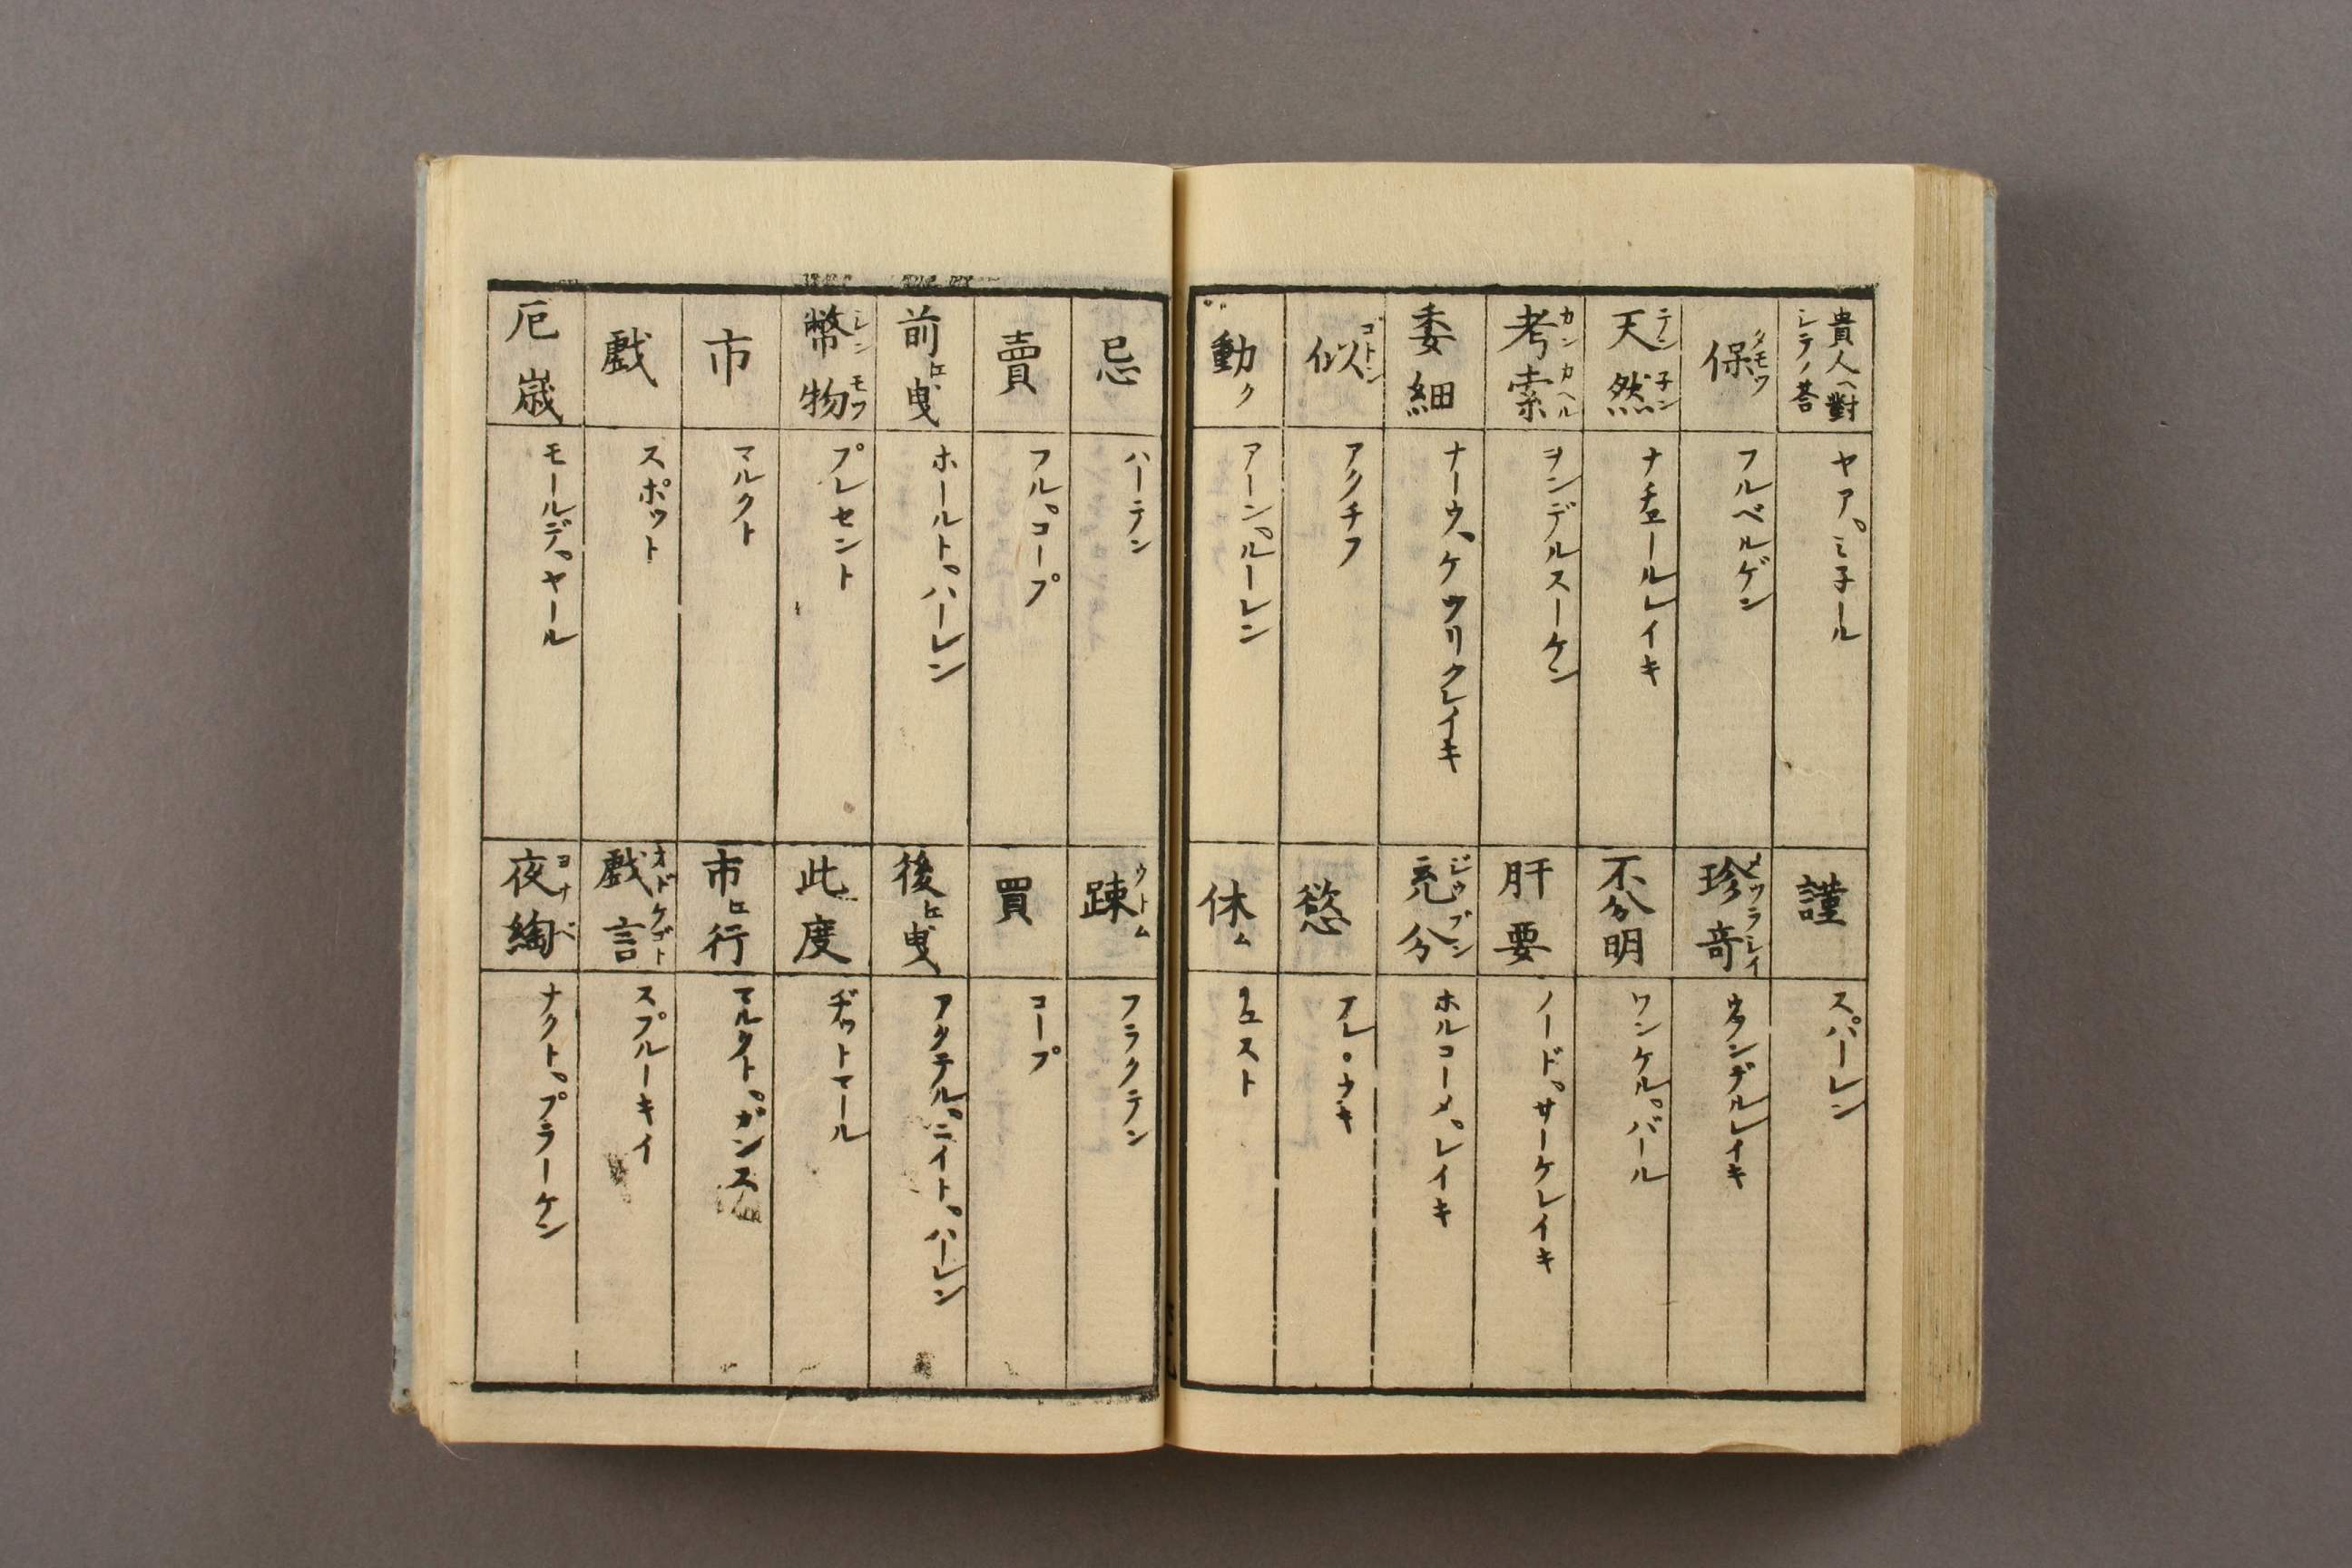 貴人へ對
シテノ荅
ヤア。ミ子ール
保タモツ
フルベルゲン
天然テン子ン
ナチュールレイキ
考索カンカヘル
ヲンデルスーケン
委細
ナーウ、ケウリクレイキ
似ゴトシ
アクチフ
動ク
アーン。ルーレン
謹
スパーレン
珍奇メツラシイ
ヲンデルレイキ
不分明
ワンケル。バール
肝要
ノード。サーケレイキ
充分ジウブン
ホルコーメ。レイキ
慾
アレ。ウキ
休ム
リュスト
忌
ハーテン
賣
フル。コープ
前エ曳
ホールト。ハーレン
幣物シンモツ
プレセント
市
マルクト
戯
スポット
厄歳
モールデ。ヤール
踈ウトム
フラクテン
買
コープ
後エ曳
アクテル。ニイト。ハーレン
此度
ヂットマール
市エ行
マルクト。ガンス
戯言オドケゴト
スプルーキイ
夜綯ヨナベ
ナクト。プラーケン